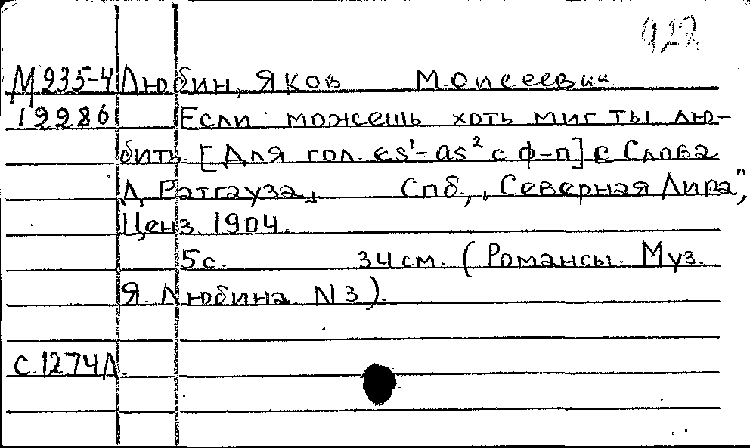 922
М 935-4 Любин, Яков Моисеевич
19986 Если можешь хоть миг ты лю-
бить [Для гол. es¹-as² с ф-п] с Слова
Д. Ратгауза, Спб, „Северная Лира",
Ценз. 1904.
5 с. 34 см. (Романсы. Муз.
Я. Любина. N 3).
С. 1274 Л.